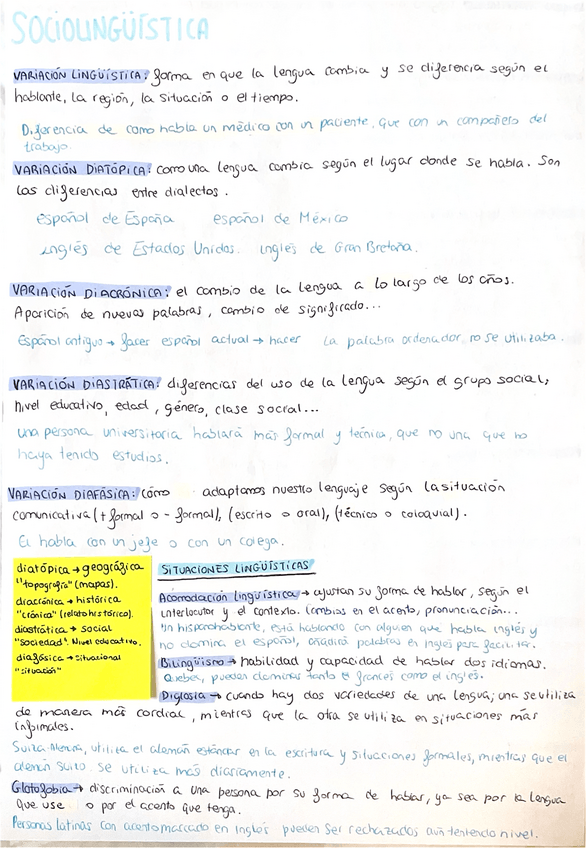 SOCIOLINGÜÍSTICA
VARIACIÓN LINGÜÍSTICA: forma en que la lengua cambia y se diferencia según el
hablante, la región, la situación o el tiempo.
Diferencia de como habla un médico con un paciente, que con un compañero del
trabajo.
VARIACIÓN DIATÓPICA: como una lengua cambia según el lugar donde se habla. Son
las diferencias entre dialectos.
español de España español de México
inglés de Estados Unidos. inglés de Gran Bretaña.
VARIACIÓN DIACRÓNICA: el cambio de la lengua a lo largo de los años.
Aparición de nuevas palabras, cambio de significado...
Español antiguo → facer español actual → hacer la palabra ordenador no se utilizaba.
VARIACIÓN DIASTRÁTICA: diferencias del uso de la lengua según el grupo social,
nivel educativo, edad, género, clase social...
una persona universitaria hablará más formal y técnica, que no una que no
haya tenido estudios.
VARIACIÓN DIAFÁSICA: cómo adaptamos nuestro lenguaje según la situación
comunicativa (+ formal o - formal), (escrito o oral), (técnico o coloquial).
El habla con un jefe o con un colega.
diatópica → geográfica
"topografía" (mapas).
diacrónica → histórica
"crónica" (relato histórico).
diastrática → social
"sociedad". Nivel educativo.
diafásica → situacional
"situación"
SITUACIONES LINGÜÍSTICAS
Acomodación lingüística → ajustan su forma de hablar, según el
interlocutor y el contexto. Cambios en el acento, pronunciación...
Un hispanohablante, está hablando con alguien que habla inglés y
no domina el español, añadirá palabras en inglés para facilitar.
Bilingüismo → habilidad y capacidad de hablar dos idiomas.
Quebec, pueden dominar tanto el francés como el inglés.
Diglosia → cuando hay dos variedades de una lengua; una se utiliza
de manera más cordial, mientras que la otra se utiliza en situaciones más
informales.
Suiza-Alemana, utiliza el alemán estándar en la escritura y situaciones formales, mientras que el
alemán suizo. Se utiliza más diariamente.
Glotofobia → discriminación a una persona por su forma de hablar, ya sea por la lengua
que use o por el acento que tenga.
Personas latinas con acento marcado en inglés pueden ser rechazados aun teniendo nivel.